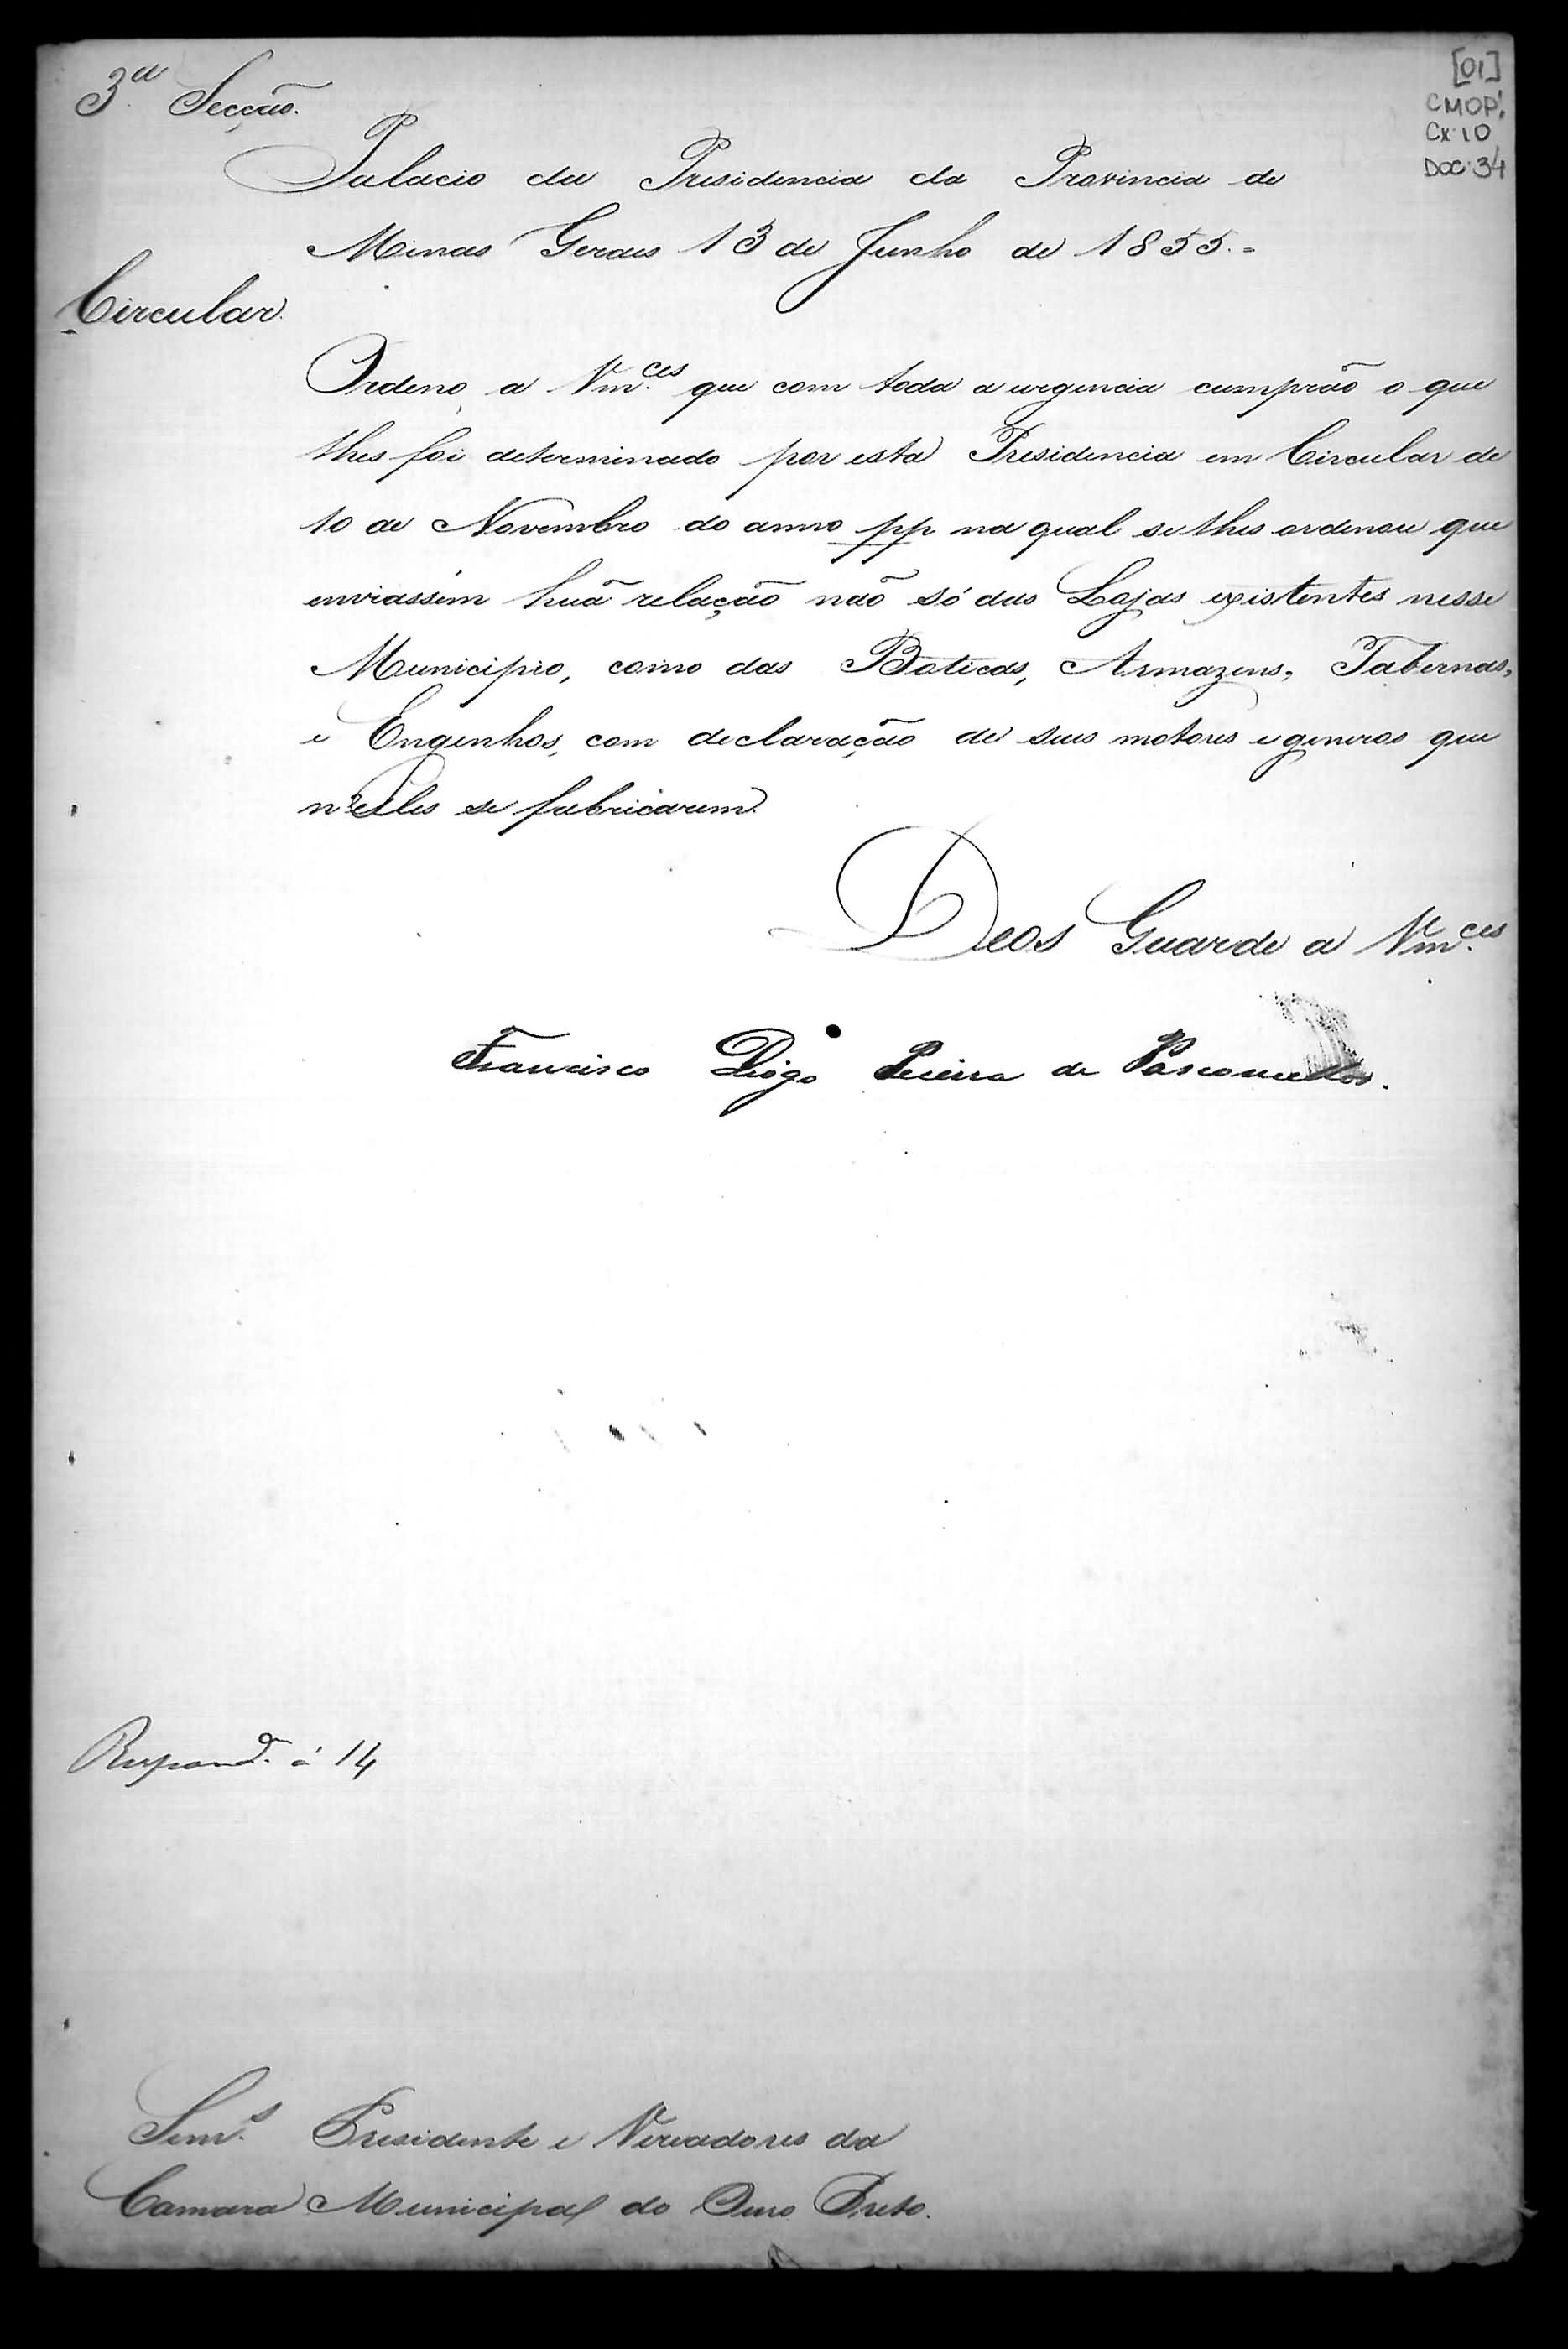 [01]
CMOP.
Cx. 10
DOC. 34
3.ª Secção.
Palacio da Presidencia da Provincia de
Minas Geraes 13 de Junho de 1855.=
Circular.
Ordeno a Vm.ces que com toda a urgencia cumprão o que
lhes foi determinado por esta Presidencia em Circular de
10 de Novembro do anno pp na qual se lhes ordenou que
enviassem huã relação não só das Lojas existentes nesse
Municipio, como das Boticas, Armazens, Tabernas,
e Engenhos, com declaração de seus motores e generos que
n'elles se fabricarem.
Deos Guarde a Vm.ces
Francisco Diogo Pereira de Vasconcellos.
Respond.º á 14
Senr.s Presidente e Vereadores da
Camara Municipal do Ouro Preto.